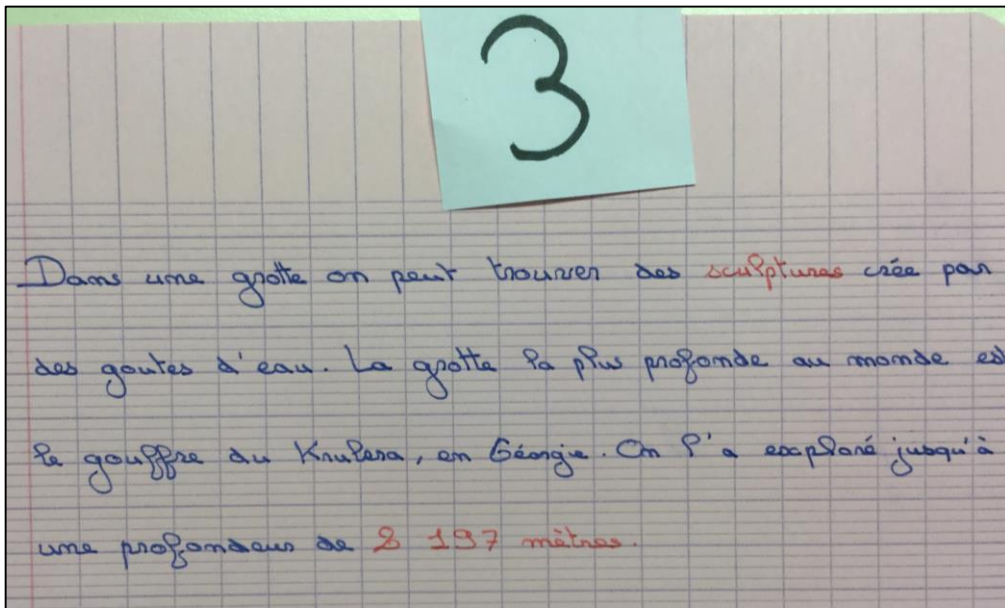 3
Dans une grotte on peut trouver des sculptures crée par
des goutes d'eau. La grotte la plus profonde au monde est
le gouffre du Krubera, en Géorgie. On l'a exploré jusqu'à
une profondeur de 2 197 mètres.